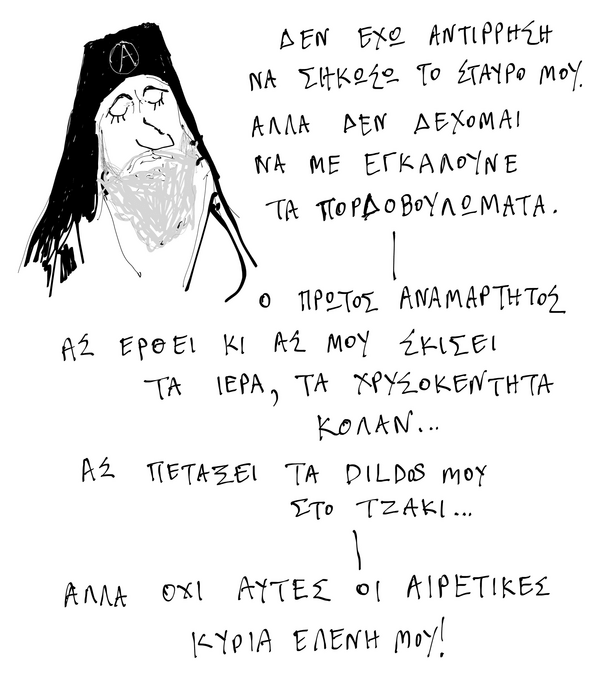 Α
ΔΕΝ ΕΧΩ ΑΝΤΙΡΡΗΣΗ
ΝΑ ΣΗΚΩΣΩ ΤΟ ΣΤΑΥΡΟ ΜΟΥ.
ΑΛΛΑ ΔΕΝ ΔΕΧΟΜΑΙ
ΝΑ ΜΕ ΕΓΚΑΛΟΥΝΕ
ΤΑ ΠΟΡΔΟΒΟΥΛΩΜΑΤΑ.
Ο ΠΡΩΤΟΣ ΑΝΑΜΑΡΤΗΤΟΣ
ΑΣ ΕΡΘΕΙ ΚΙ ΑΣ ΜΟΥ ΣΚΙΣΕΙ
ΤΑ ΙΕΡΑ, ΤΑ ΧΡΥΣΟΚΕΝΤΗΤΑ
ΚΟΛΑΝ...
ΑΣ ΠΕΤΑΞΕΙ ΤΑ DILDOS ΜΟΥ
ΣΤΟ ΤΖΑΚΙ...
ΑΛΛΑ ΟΧΙ ΑΥΤΕΣ ΟΙ ΑΙΡΕΤΙΚΕΣ
ΚΥΡΙΑ ΕΛΕΝΗ ΜΟΥ!